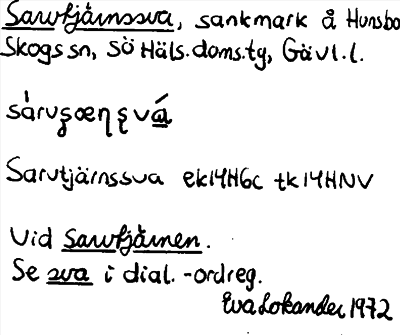 Sarvtjärnssva, sankmark å Hunsbo
Skogs sn, SÖ Häls.doms.tg, Gävl.l.
sàrvʂœɳʂvá
Sarvtjärnssva ek14H6c tk14HNV
Vid Sarvtjärnen.
Se sva i dial.-ordreg.
Eva Lokander 1972